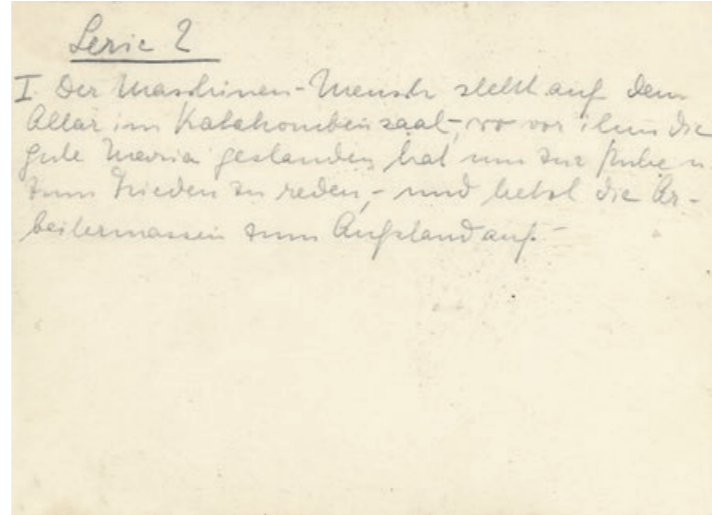 Serie 2
I. Der Maschinen-Mensch steht auf dem
Altar im Katakombensaal, wo vor ihm die
gute Maria gestanden hat um zur Ruhe u.
zum Frieden zu reden, - und hetzt die Ar-
beitermassen zum Aufstand auf. -